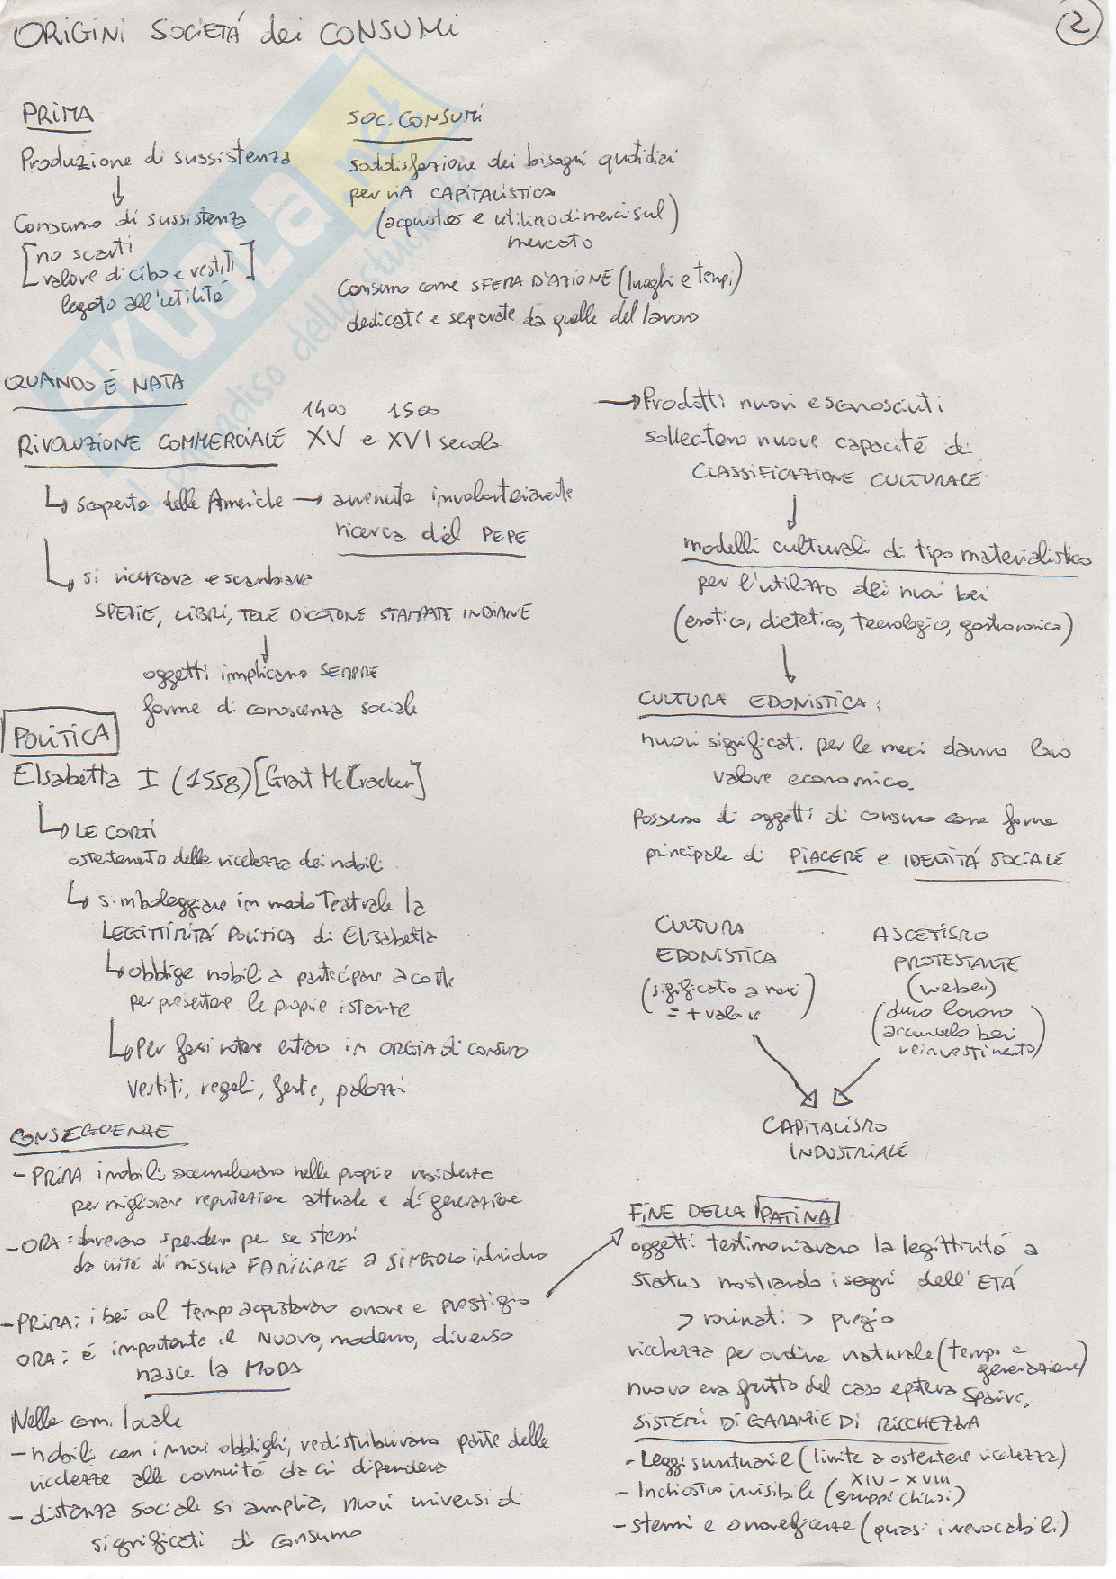 ORIGINI SOCIETÁ dei CONSUMI
2
PRIMA
Produzione di sussistenza
Consumo di sussistenza
[no scarti
valore di cibo e vestiti]
legato all'utilitá
SOC. CONSUMI
soddisfazione dei bisogni quotidiani
per viA CAPITALISTICA
(acquisto e utilizzo di merci sul)
mercato
Consumo come SFERA D'AZIONE (luoghi e tempi)
dedicate e separate da quelle del lavoro
QUANDO É NATA
1400 1500
RIVOLUZIONE COMMERCIALE XV e XVI secolo
scoperta delle Americhe → avvenuta involontariamente
ricerca del PEPE
si ricercava e scambiava
SPEZIE, LIBRI, TELE DI COTONE STAMPATE INDIANE
oggetti implicano SEMPRE
forme di conoscenza sociale
POLITICA
Elisabetta I (1558) [Grant McCracken]
LE CORTI
ostentamento della ricchezza dei nobili
simboleggiare in modo Teatrale la
LEGITTIMITÁ POLITICA di Elisabetta
obbliga nobili a partecipare a corte
per presentare le proprie istante
Per farsi notare entrano in ORGIA di CONSUMO
Vestiti, regali, feste, palazzi
CONSEGUENZE
- PRIMA i nobili accumulavano nelle proprie residenze
per migliorare reputazione attuale e di generazione
- ORA: dovevano spendere per se stessi
da unitá di misura FAMILIARE a SINGOLO individuo
- PRIMA: i beni col tempo acquistavano onore e prestigio
ORA: é importante il NUOVO, moderno, diverso
nasce la MODA
Nelle com. locale
- nobili con i nuovi obblighi, redistribuivano parte delle
ricchezze alle comunitá da cui dipendeva
- distanza sociale si amplia, nuovi universi di
significati di consumo
→ Prodotti nuovi e sconosciuti
sollecitano nuove capacitá di
CLASSIFICAZIONE CULTURALE
modelli culturali di tipo materialistico
per l'utilizzo dei nuovi beni
(esotico, dietetico, tecnologico, gastronomico)
CULTURA EDONISTICA:
nuovi significati per le merci danno loro
valore economico.
Possesso di oggetti di consumo come forma
principale di PIACERE e IDENTITÁ SOCIALE
CULTURA
EDONISTICA
(significato a merci
= + valore)
ASCETISMO
PROTESTANTE
(weber)
(duro lavoro
accumulo beni
reinvestimento)
CAPITALISMO
INDUSTRIALE
FINE DELLA PATINA
oggetti testimoniavano la legittimitá a
status mostrando i segni dell'ETÁ
> rovinati > pregio
ricchezza per ordine naturale (tempo e
generazione)
nuovo era frutto del caso e poteva sparire.
SISTEMI DI GARANZIE DI RICCHEZZA
- Leggi suntuarie (limite a ostentare ricchezza)
XIV - XVIII
- Inchiostro invisibile (gruppi chiusi)
- stemmi e onoreficenze (quasi irrevocabili)
SKUOLA.net
il paradiso dello studente